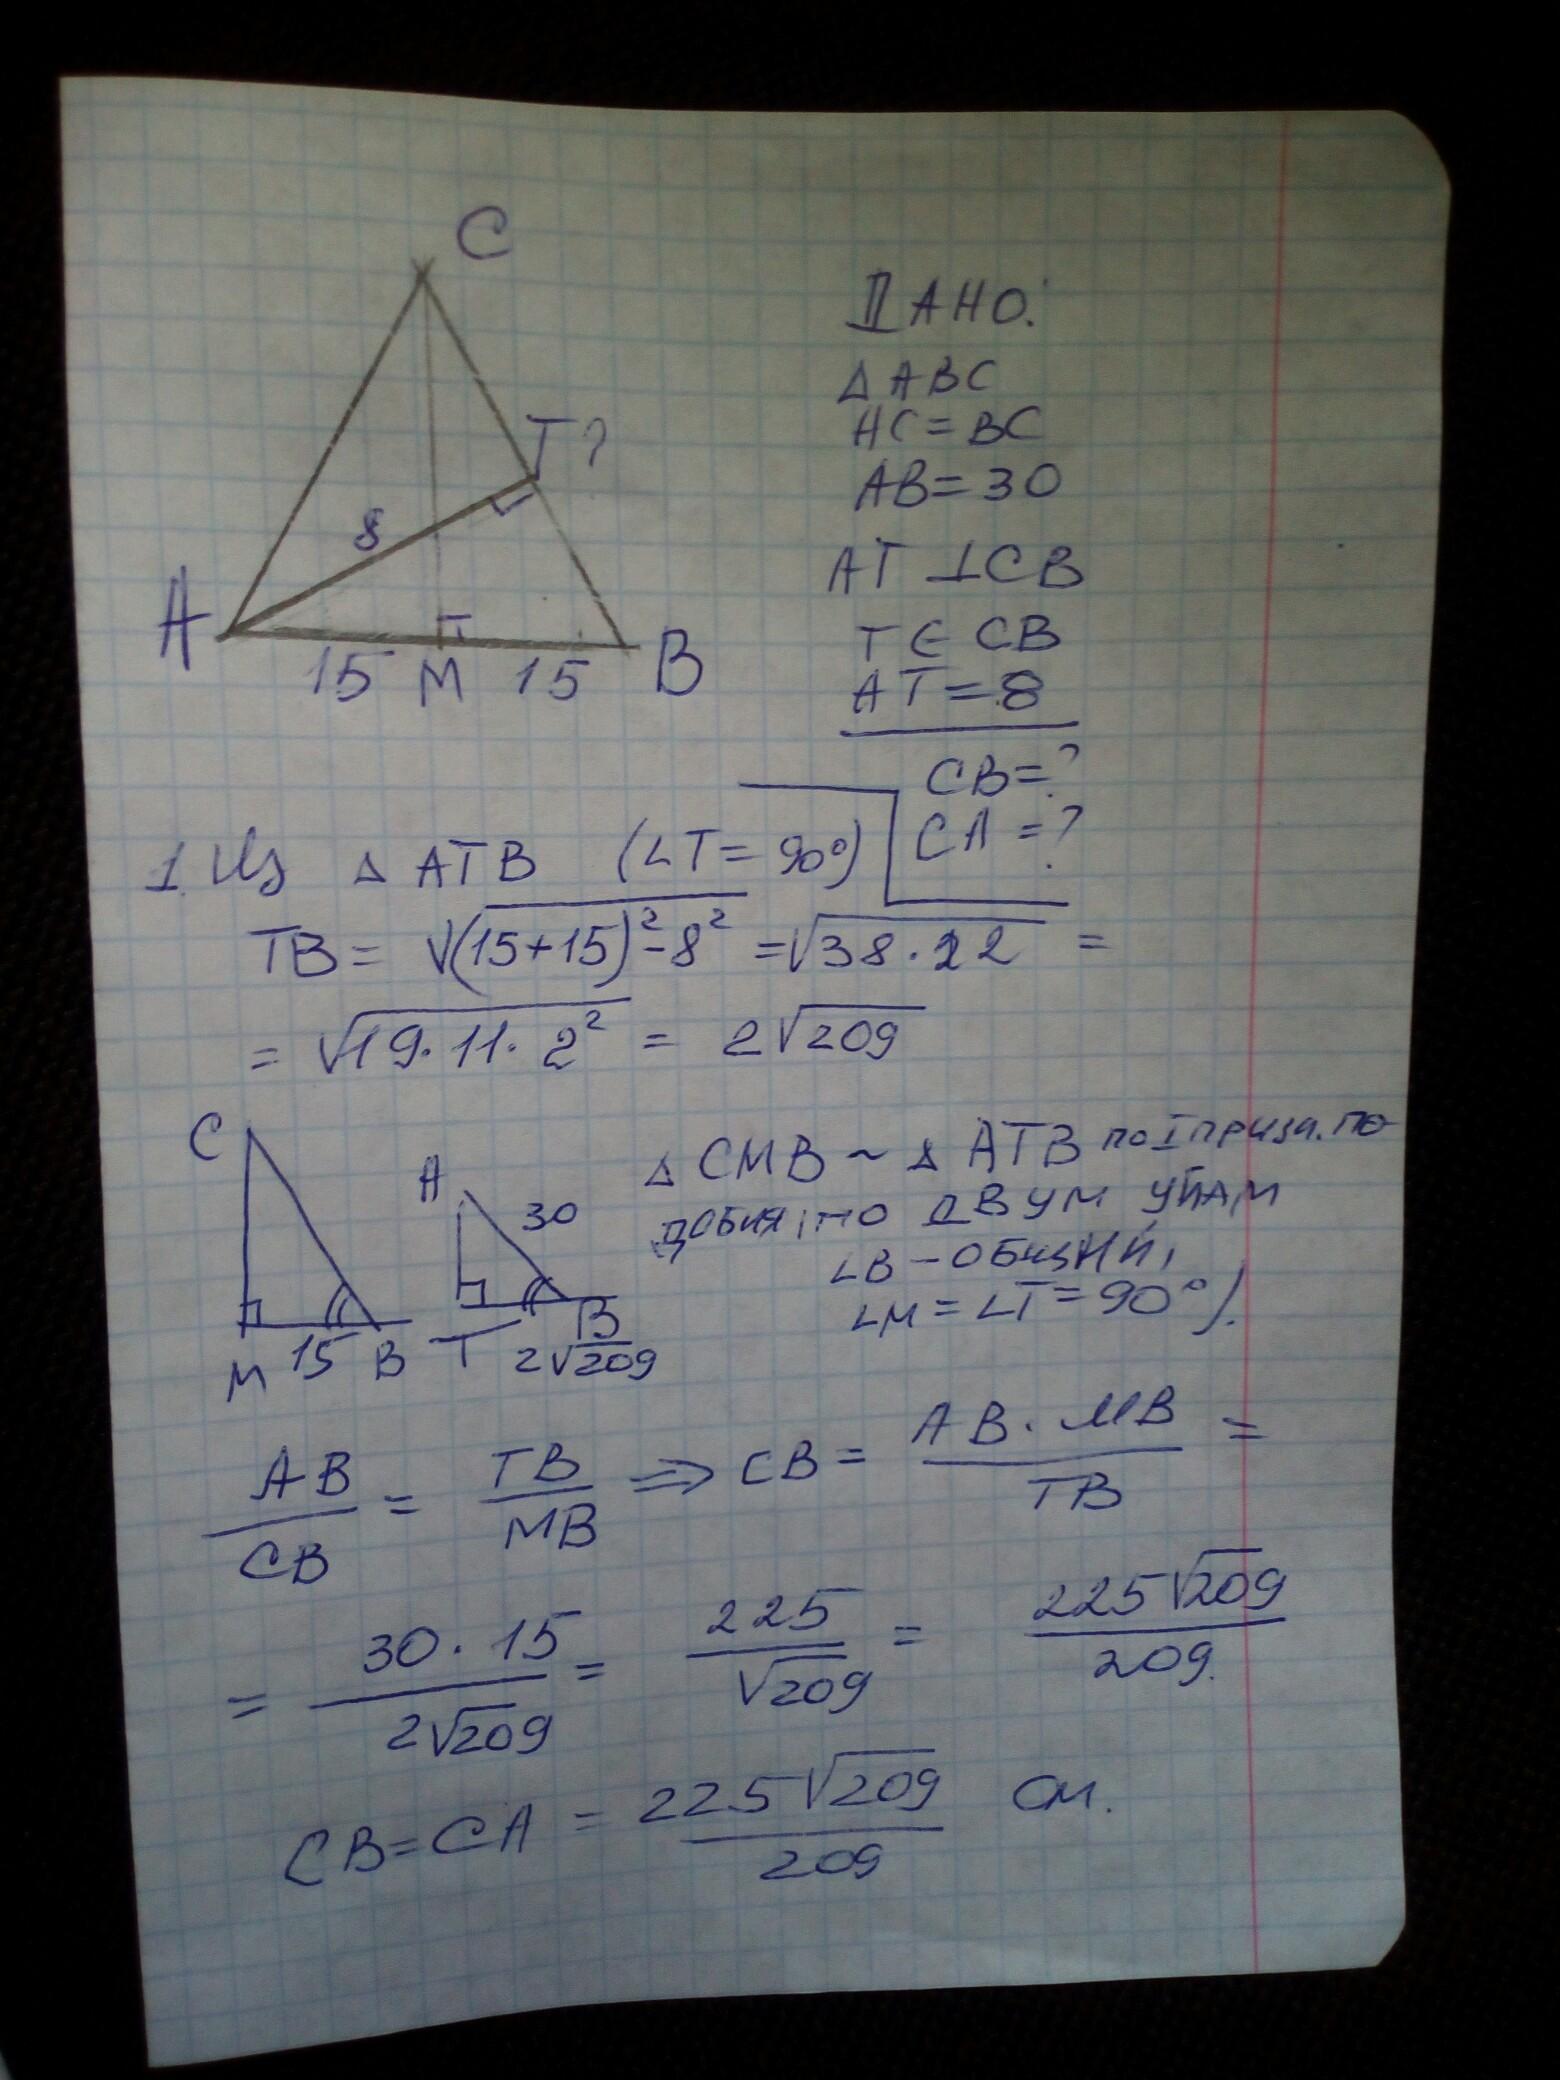 C
T?
8
A
15 M 15 B
ДАНО:
Δ ABC
AC = BC
AB = 30
AT ⊥ CB
T ∈ CB
AT = 8
CB = ?
CA = ?
1. Из Δ ATB (∠T = 90°)
TB = √((15+15)² - 8²) = √(38 · 22) =
= √(19 · 11 · 2²) = 2√209
C
M 15 B
A
30
T 2√209 B
Δ CMB ~ Δ ATB по I призн. по
добия, по двум углам
∠B - общий,
∠M = ∠T = 90°).
AB/CB = TB/MB ⇒ CB = AB · MB/TB =
= 30 · 15/2√209 = 225/√209 = 225√209/209
CB = CA = 225√209/209 см.